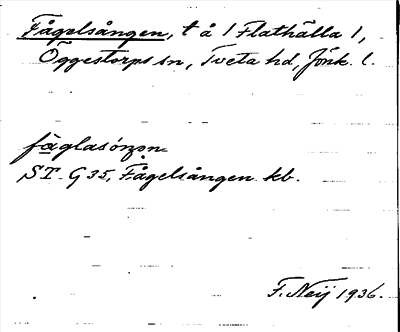 Fågelsången, t å / Flathälla 1,
Öggestorps sn, Tveta hd, Jönk. l.
fåglasóŋən
ST-G 35, Fågelsången kb.
F. Neij 1936.